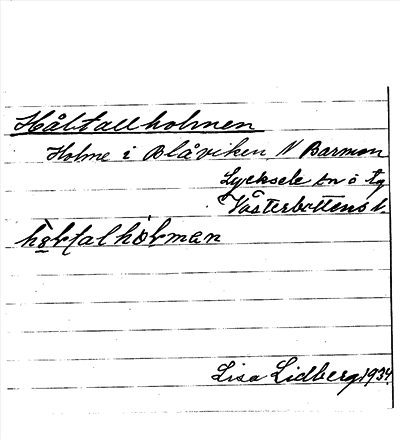 Håltallholmen
Holme i Blåviken N Barman
Lycksele sn o tg
Västerbottens l.
Lisa Lidberg 1934